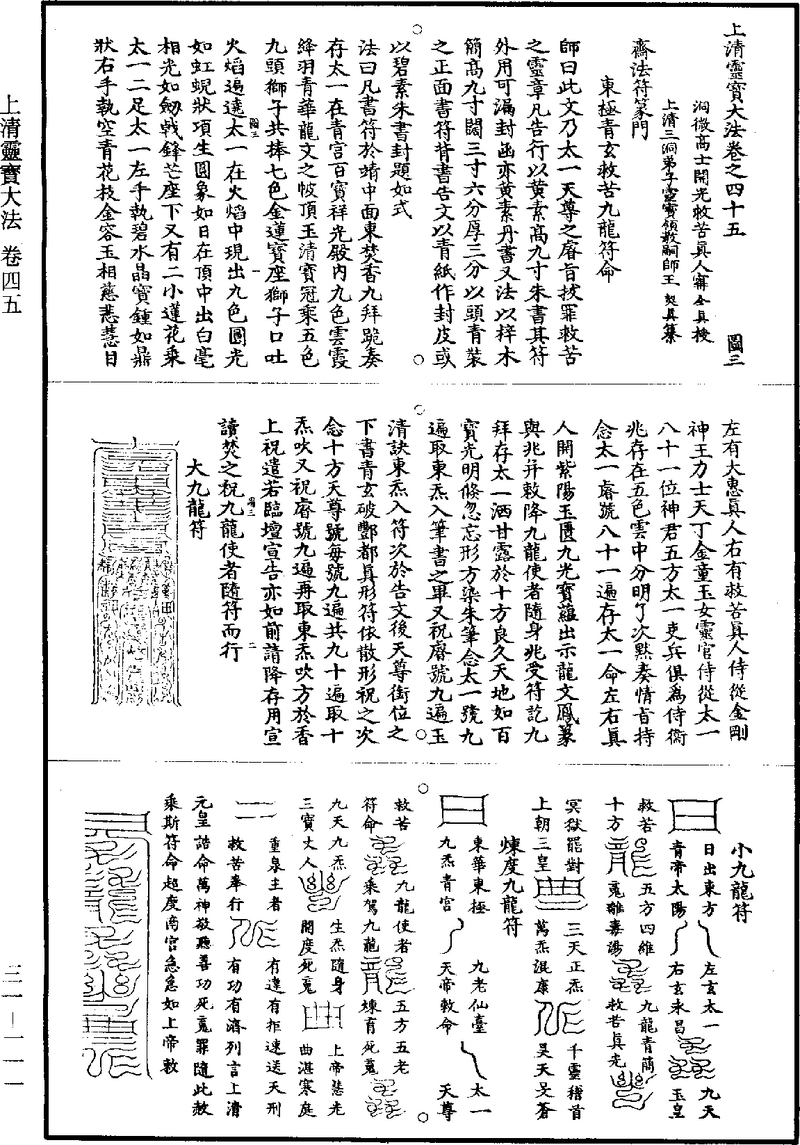 上清靈寶大法卷之四十五　圖三
洞微高士開光救苦真人甯全真授
上清三洞弟子靈寶領教嗣師王契真纂
齋法符篆門
東極青玄救苦九龍符命
師曰此文乃太一天尊之睿旨拔罪救苦
之靈章凡告行以黃素高九寸朱書其符
外用可漏封函亦黃素丹書又法以梓木
簡高九寸闊三寸六分厚三分以頭青裝
之正面書符背書告文以青紙作封皮或
以碧素朱書封題如式
法曰凡書符於靖中面東焚香九拜跪奏
存太一在青宮百寶祥光殿內九色雲霞
絳羽青華龍文之帔頂玉清寶冠乘五色
九頭獅子共捧七色金蓮寶座獅子口吐
火焰遍遶太一在火焰中現出九色圓光
如虹蜺狀項生圓象如日在頂中出白毫
相光如劒戟鋒芒座下又有二小蓮花乘
太一二足太一左手執碧水晶寶鍾如鼎
狀右手執空青花枝金容玉相慈悲慧目
左有大惠真人右有救苦真人侍從金剛
神王力士天丁金童玉女靈官侍從太一
八十一位神君五方太一吏兵俱為侍衛
兆存在五色雲中分明了次黙奏情旨持
念太一睿號八十一遍存太一命左右真
人開紫陽玉匱九光寶蘊出示龍文鳳篆
與兆并敕降九龍使者隨身兆受符訖九
拜存太一洒甘露於十方良久天地如百
寶光明倏忽忘形方染朱筆念太一號九
遍取東炁入筆書之畢又祝睿號九遍玉
清訣東炁入符次於告文後天尊銜位之
下書青玄破酆都真形符依散形祝之次
念十方天尊號每號九遍共九十遍取十
炁吹又祝睿號九遍再取東炁吹方於香
上祝遣若臨壇宣告亦如前請降存用宣
讀焚之祝九龍使者隨符而行
大九龍符
小九龍符
日出東方
青帝太陽
左玄太一
右玄永昌
九天
玉皇
救苦
十方
五方四維
九龍青簡
救苦真光
冥獄罷對
上朝三皇
三天正炁
萬炁混康
千靈稽首
昊天旻蒼
煉度九龍符
東華東極
九炁青宮
九老仙臺
天帝敕命
太一
天尊
救苦
符命
九龍使者
乘駕九龍
五方五老
煉育死魂
九天九炁
三寶丈人
生炁隨身
開度死魂
上帝慧光
曲湛寒庭
重泉主者
救苦奉行
有違有拒速送天刑
有功有濟列言上清
元皇誥命萬神敬聽善功死魂罪隨此赦
乘斯符命超度南宮急急如上帝敕
上清靈寶大法　卷四五
三一—一一